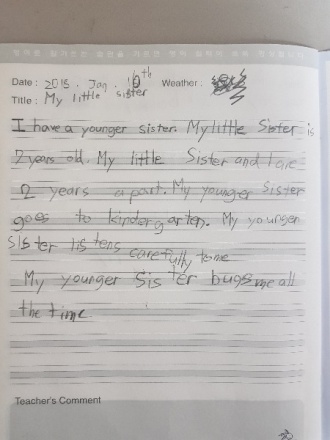 Date : 2015 . Jan . 10th Weather :
Title : My little sister
I have a younger sister. My little Sister is
7 years old. My little Sister and I are
2 years apart. My younger Sister
goes to kindergarten. My younger
sister listens carefully to me
My younger Sister bugs me all
the time
Teacher's Comment